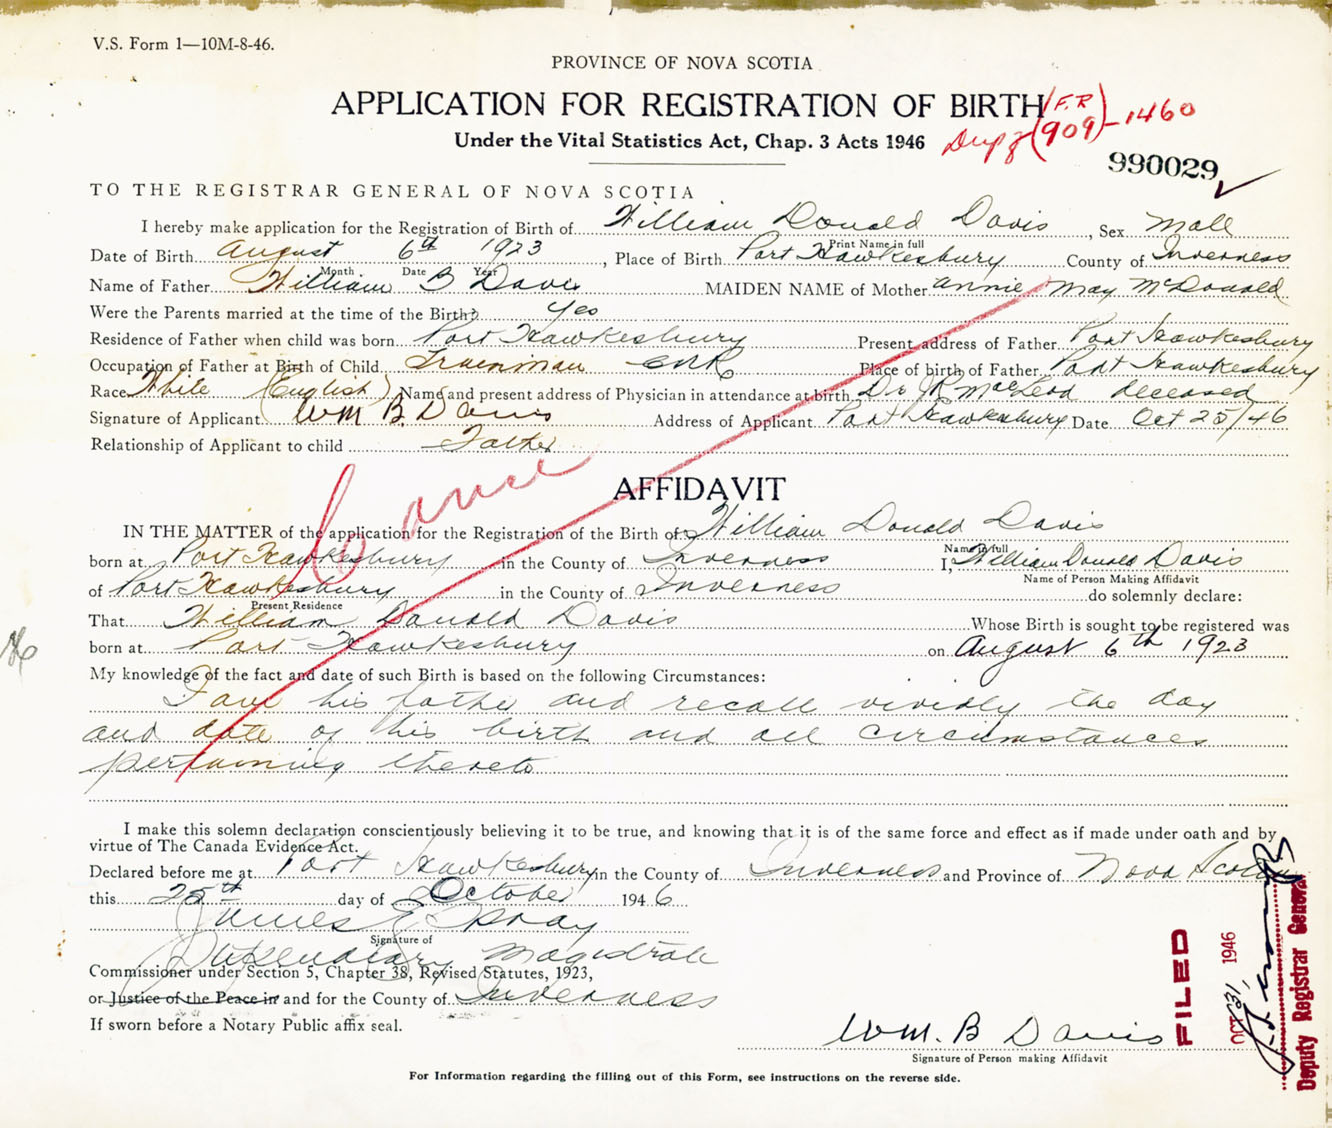 V.S. Form 1—10M-8-46.
PROVINCE OF NOVA SCOTIA
APPLICATION FOR REGISTRATION OF BIRTH
(F.R
909)-1460
Under the Vital Statistics Act, Chap. 3 Acts 1946
990029
TO THE REGISTRAR GENERAL OF NOVA SCOTIA
I hereby make application for the Registration of Birth of William Donald Davis, Sex Male
Print Name in full
Date of Birth August 6th 1923, Place of Birth Port Hawkesbury County of Inverness
Month Date Year
Name of Father William B Davis MAIDEN NAME of Mother Annie May McDonald
Were the Parents married at the time of the Birth? Yes
Residence of Father when child was born Port Hawkesbury Present address of Father Port Hawkesbury
Occupation of Father at Birth of Child Trainman CNR Place of birth of Father Port Hawkesbury
Race White (English) Name and present address of Physician in attendance at birth Dr MacLeod deceased
Signature of Applicant WM B. Davis Address of Applicant Port Hawkesbury Date Oct 25/46
Relationship of Applicant to child Father
Cancel
AFFIDAVIT
IN THE MATTER of the application for the Registration of the Birth of William Donald Davis
Name in full
born at Port Hawkesbury in the County of Inverness I, William Donald Davis
Name of Person Making Affidavit
of Port Hawkesbury in the County of Inverness do solemnly declare:
Present Residence
That William Donald Davis Whose Birth is sought to be registered was
born at Port Hawkesbury on August 6th 1923
My knowledge of the fact and date of such Birth is based on the following Circumstances:
I am his father and recall vividly the day
and date of his birth and all circumstances
pertaining thereto
I make this solemn declaration conscientiously believing it to be true, and knowing that it is of the same force and effect as if made under oath and by
virtue of The Canada Evidence Act.
Declared before me at Port Hawkesbury in the County of Inverness and Province of Nova Scotia
this 25th day of October 1946
James E Spray
Signature of
Stipendiary Magistrate
Commissioner under Section 5, Chapter 38, Revised Statutes, 1923,
or Justice of the Peace in and for the County of Inverness
If sworn before a Notary Public affix seal.
WM. B Davis
Signature of Person making Affidavit
For Information regarding the filling out of this Form, see instructions on the reverse side.
FILED
OCT 31, 1946
Deputy Registrar General